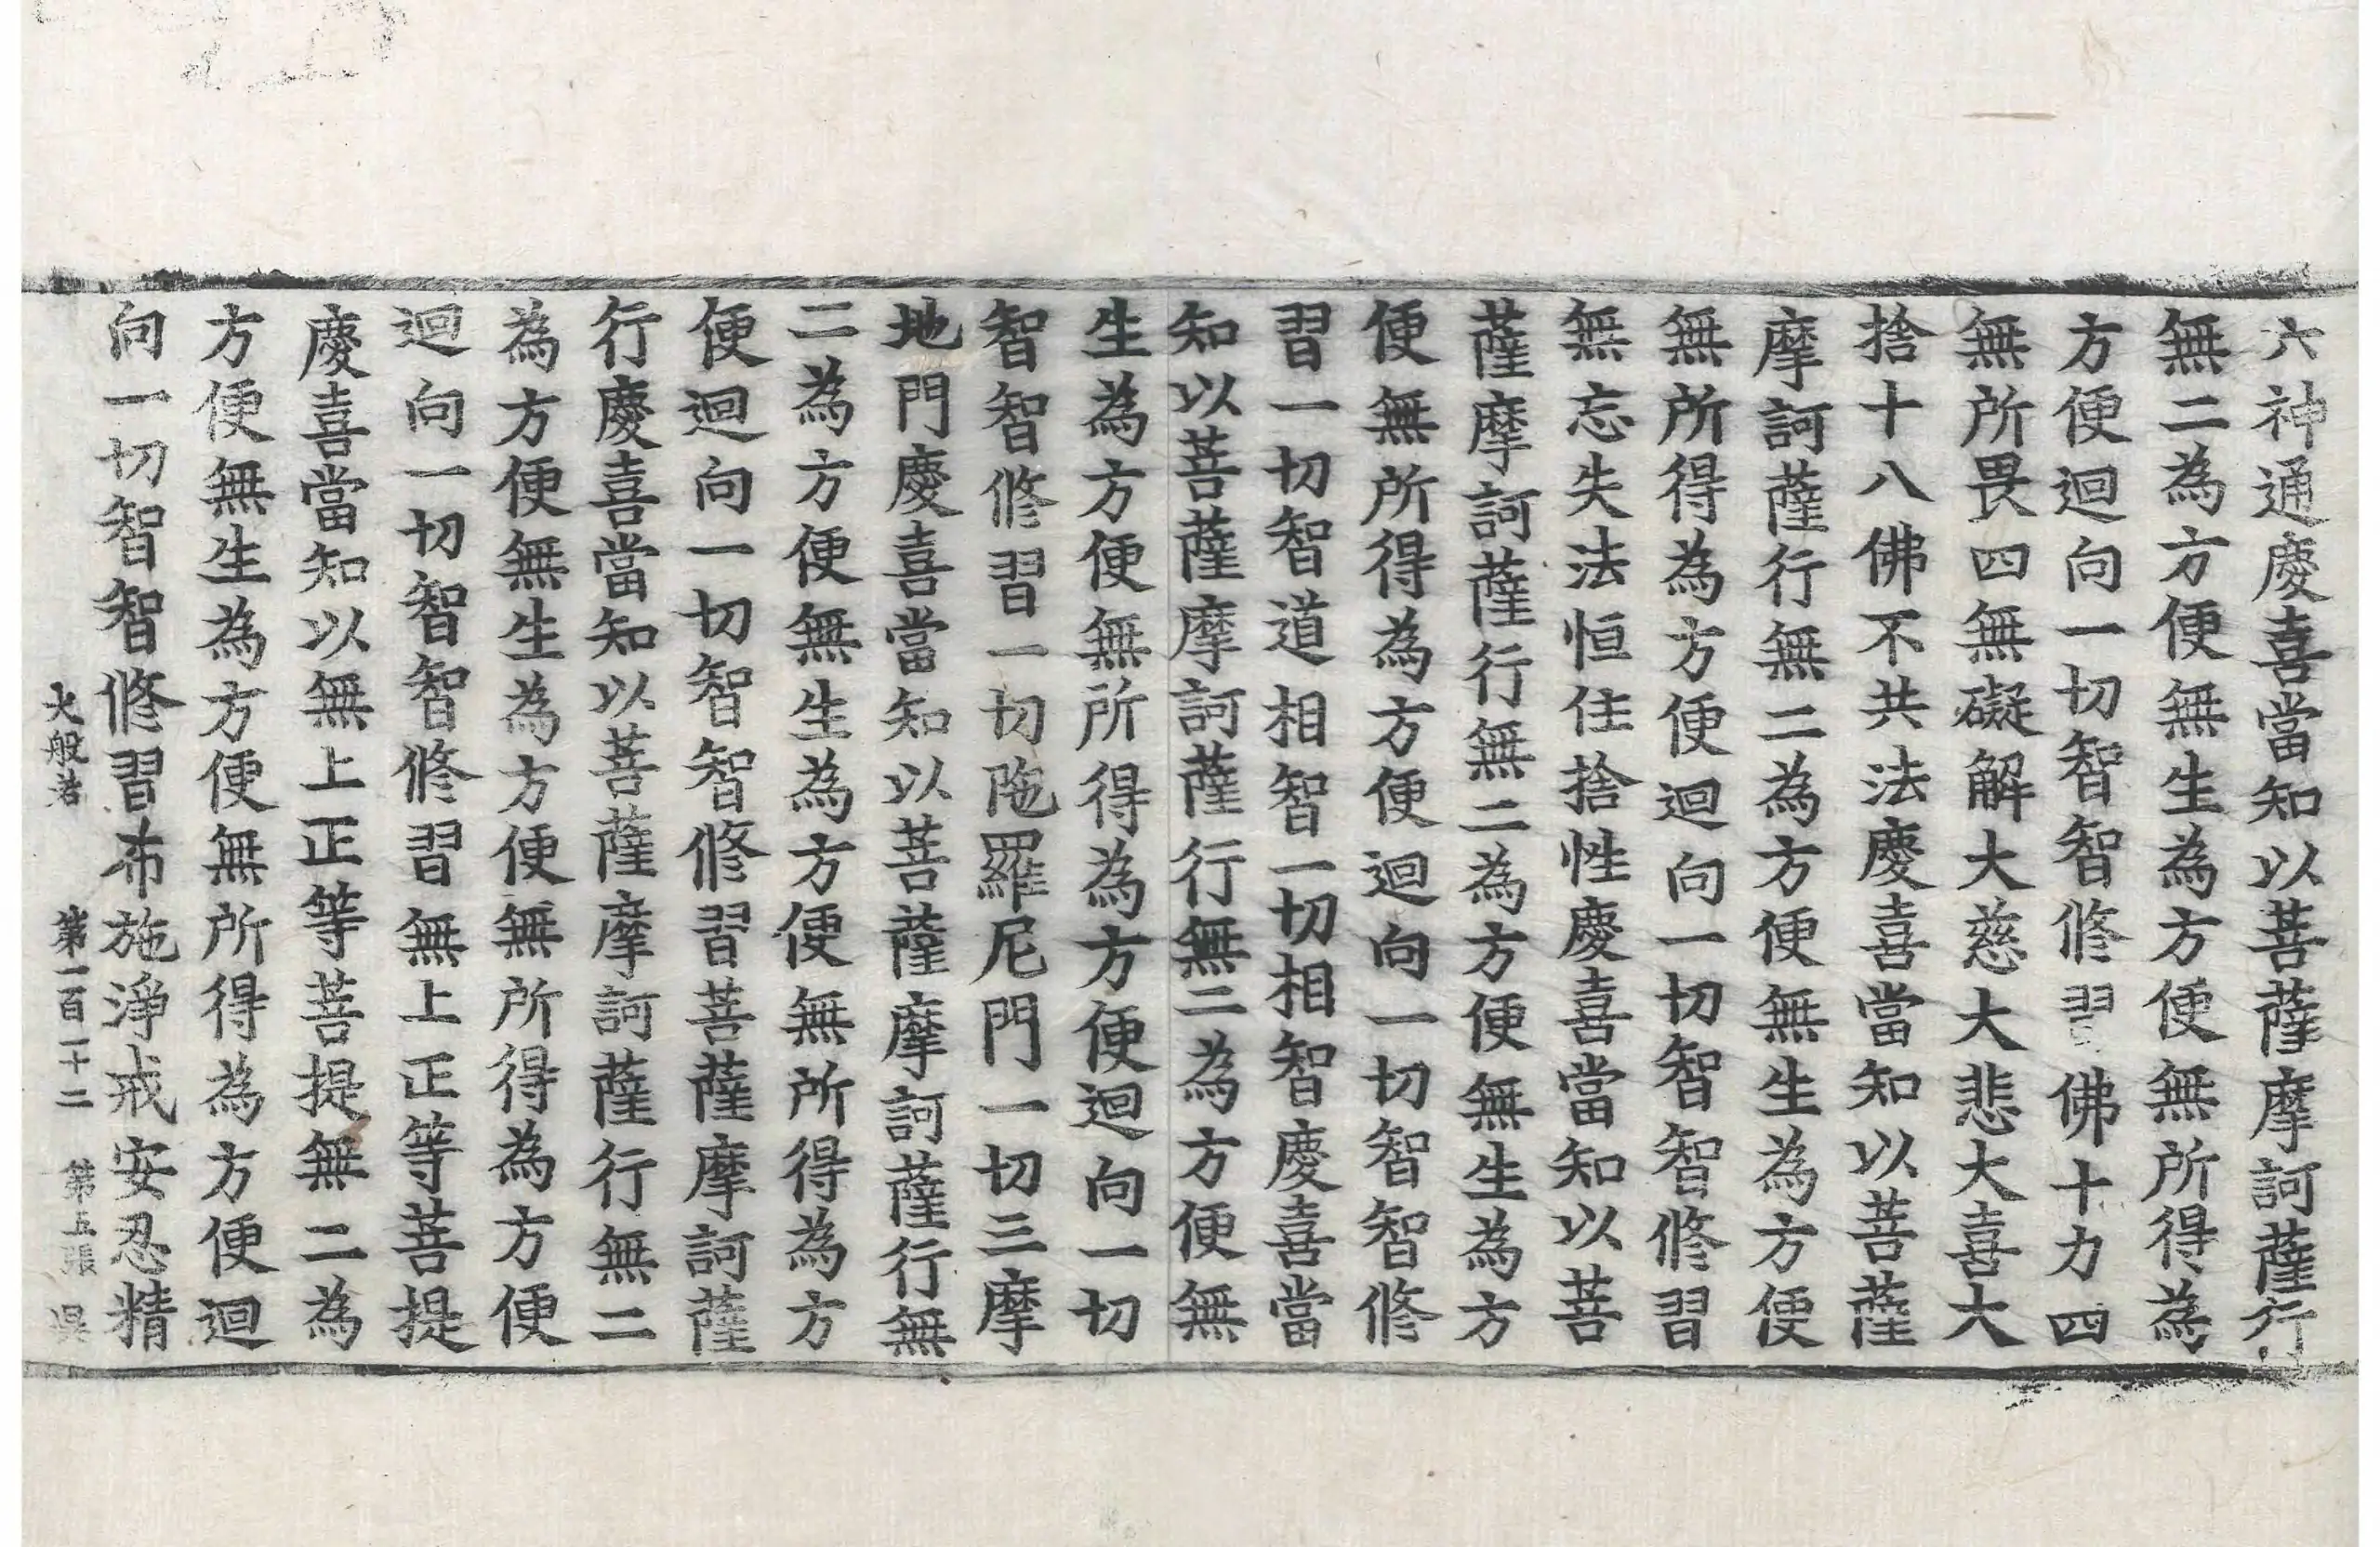 六神通慶喜當知以菩薩摩訶薩行
無二為方便無生為方便無所得為
方便迴向一切智智修習佛十力四
無所畏四無礙解大慈大悲大喜大
捨十八佛不共法慶喜當知以菩薩
摩訶薩行無二為方便無生為方便
無所得為方便迴向一切智智修習
無忘失法恒住捨性慶喜當知以菩
薩摩訶薩行無二為方便無生為方
便無所得為方便迴向一切智智修
習一切智道相智一切相智慶喜當
知以菩薩摩訶薩行無二為方便無
生為方便無所得為方便迴向一切
智智修習一切陁羅尼門一切三摩
地門慶喜當知以菩薩摩訶薩行無
二為方便無生為方便無所得為方
便迴向一切智智修習菩薩摩訶薩
行慶喜當知以菩薩摩訶薩行無二
為方便無生為方便無所得為方便
迴向一切智智修習無上正等菩提
慶喜當知以無上正等菩提無二為
方便無生為方便無所得為方便迴
向一切智智修習布施淨戒安忍精
大般若 第一百一十二 第五張